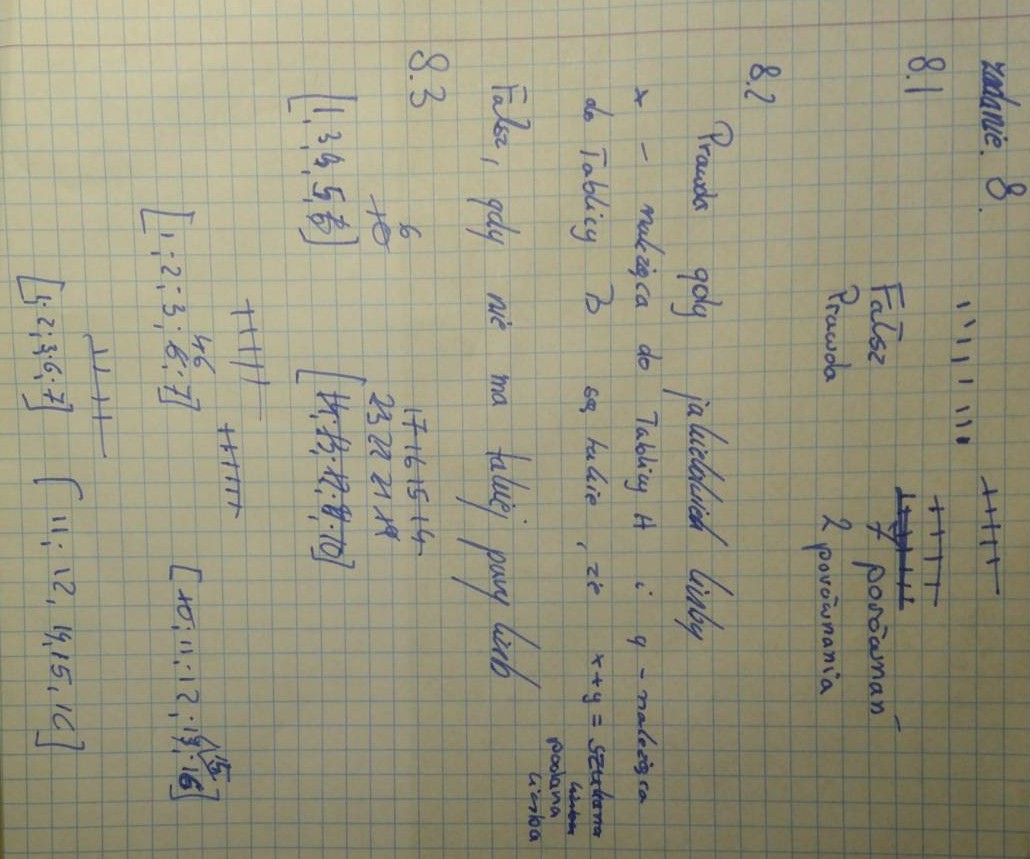 zadanie. 8.
8.1
Fałsz 7 porównań
Prawda 2 porównania
8.2
Prawda gdy jakiekolwiek liczby
x - należąca do Tablicy A i y - należąca
do Tablicy B są takie, że x+y = szukana
liczba
podana
liczba
Fałsz, gdy nie ma takiej pary liczb
8.3
6 17 16 15 14
10 23 22 21 19
[1, 3, 4, 5, 6] [14; 13; 12; 11; 10]
4 6 15
[1; 2; 3; 6; 7] [10; 11; 12; 16]
[1; 2; 3; 6; 7] [11; 12, 14, 15, 16]